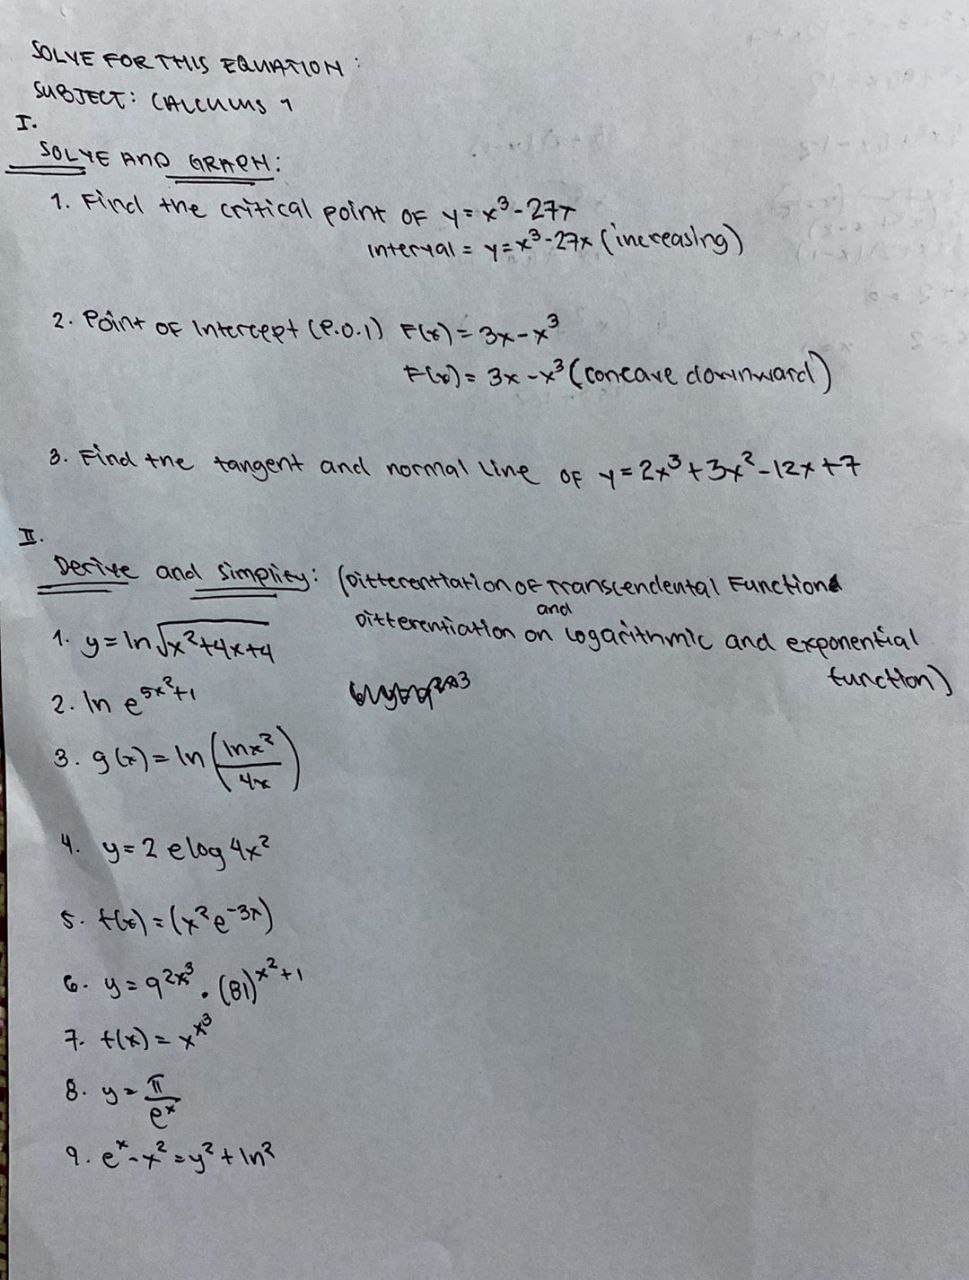 SOLVE FOR THIS EQUATION:
SUBJECT: CALCULUS 1
I.
SOLVE AND GRAPH:
1. Find the critical point OF y=x³-27x
interval = y=x³-27x (increasing)
2. Point OF Intercept (P.O.I) F(x)=3x-x³
F(x)=3x-x³ (concave downward)
3. Find the tangent and normal line OF y=2x³+3x²-12x+7
II.
Derive and simplify: (Differentiation OF Transcendental Functions
and
Differentiation on logarithmic and exponential
function)
1. y=ln√x²+4x+4
2. ln e^5x²+1
3. g(x)=ln(lnx²/4x)
4. y=2 elog 4x²
5. f(x)=(x²e^-3x)
6. y=9^2x³ . (81)^x²+1
7. f(x)=x^x³
8. y=π/e^x
9. e^x-x²=y²+ln²